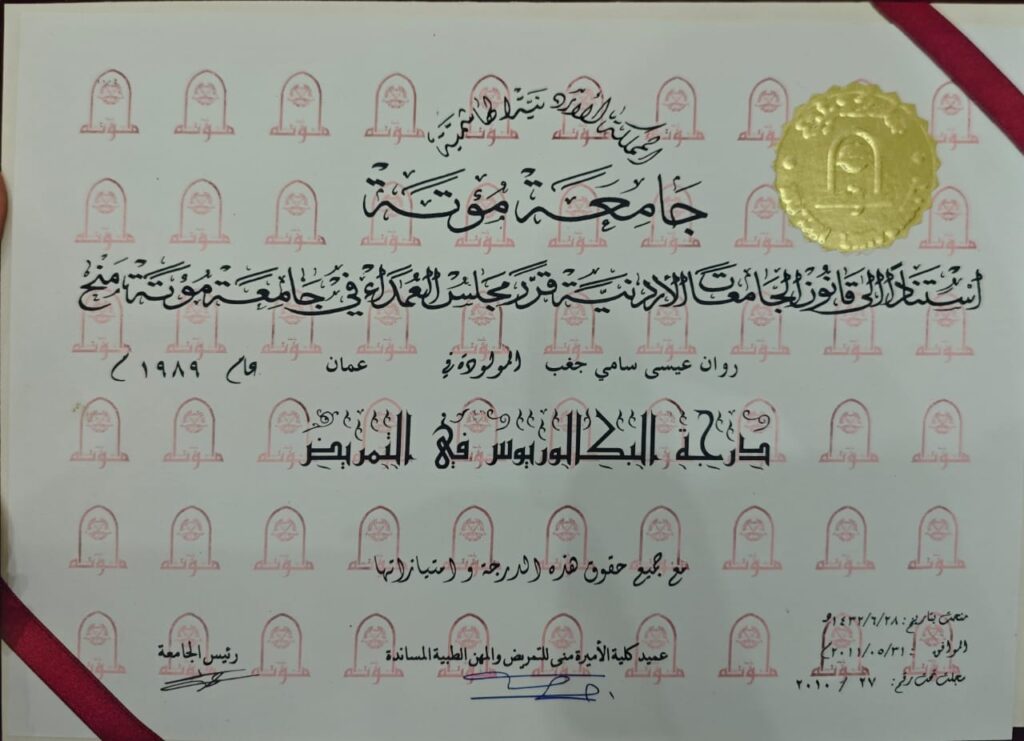 المملكة الأردنية الهاشمية
جامعة مؤتة
استنادا الى قانون الجامعات الأردنية قرر مجلس العمداء في جامعة مؤتة منح
روان عيسى سامي جغب المولودة في عمان عام ١٩٨٩ م
درجة البكالوريوس في التمريض
مع جميع حقوق هذه الدرجة و امتيازاتها
منحت بتاريخ: ١٤٣٢/٦/٢٨ه
الموافق: ٢٠١١/٠٥/٣١م
سجلت تحت رقم: ٢٧ / ٢٠١٠
عميد كلية الأميرة منى للتمريض والمهن الطبية المساندة
رئيس الجامعة
مؤتة